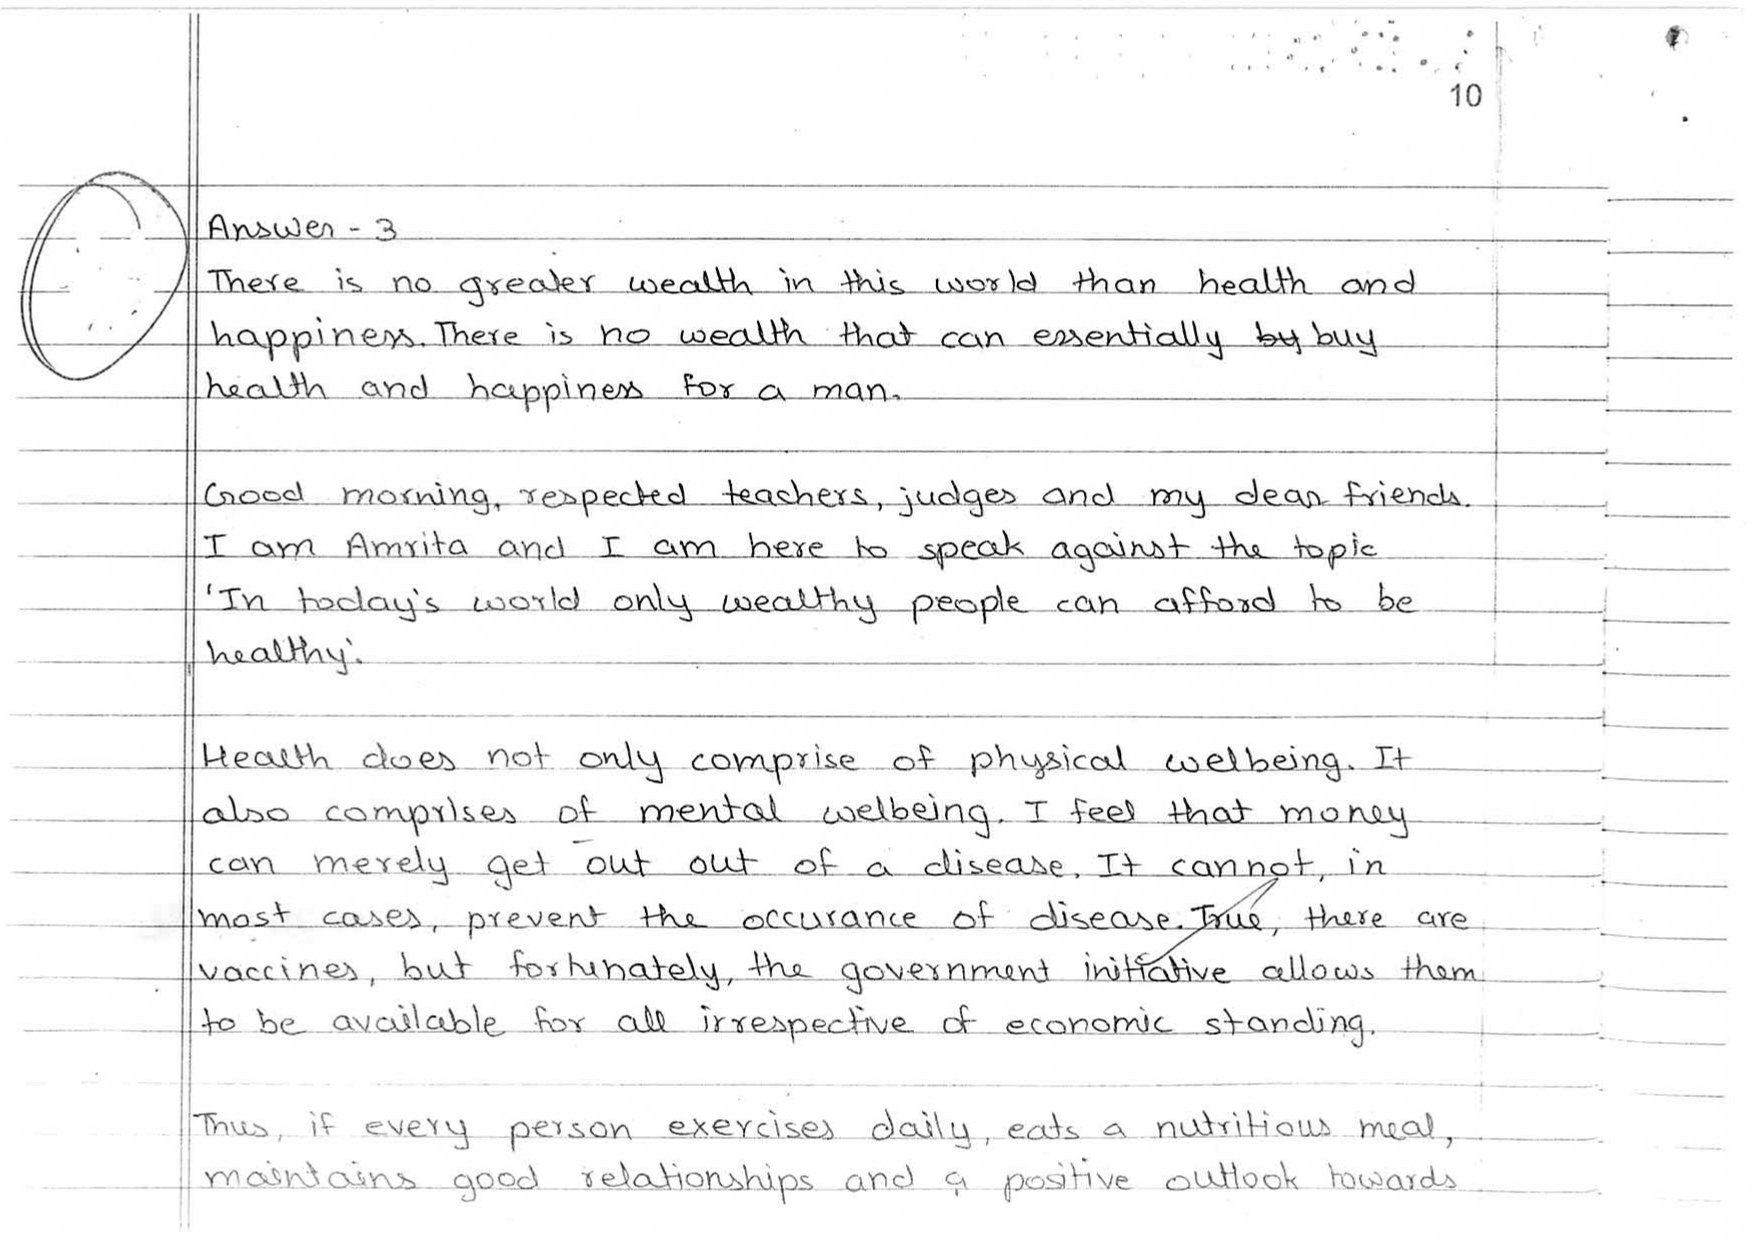 10
Answer - 3
There is no greater wealth in this world than health and
happiness. There is no wealth that can essentially by buy
health and happiness for a man.
Good morning, respected teachers, judges and my dear friends.
I am Amrita and I am here to speak against the topic
'In today's world only wealthy people can afford to be
healthy'.
Health does not only comprise of physical welbeing. It
also comprises of mental welbeing. I feel that money
can merely get out out of a disease. It cannot, in
most cases, prevent the occurance of disease. True, there are
vaccines, but fortunately, the government initiative allows them
to be available for all irrespective of economic standing.
Thus, if every person exercises daily, eats a nutritious meal,
maintains good relationships and a positive outlook towards